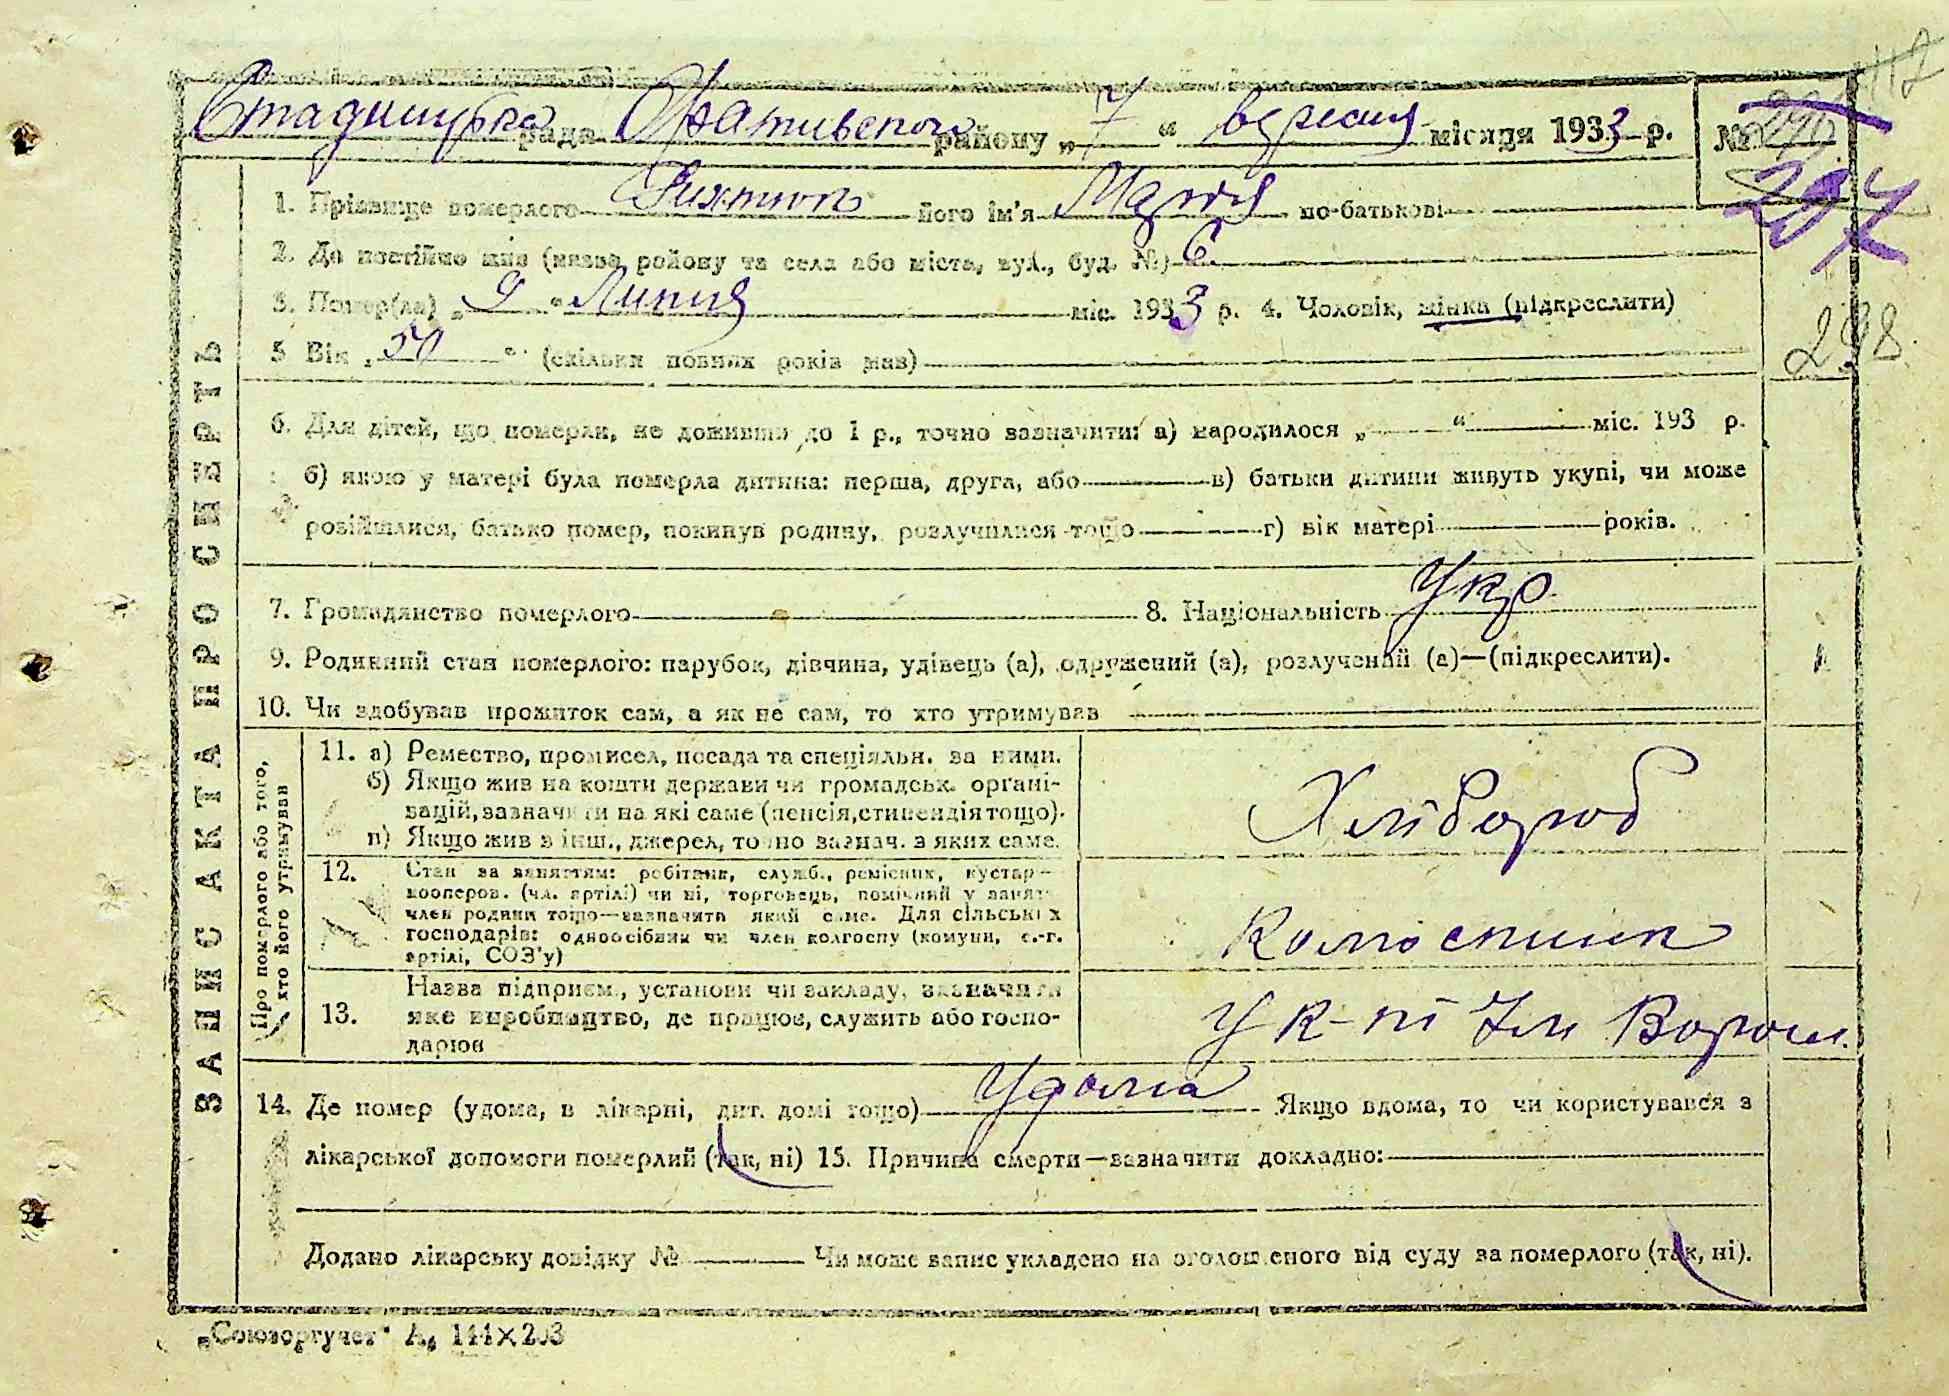 Стадницька рада Оратівського району „ 7 “ вересня місяця 1933 р. №
297
298
ЗАПИС АКТА ПРО СМЕРТЬ
1. Прізвище померлого його ім'я Марія по-батькові
2. Де постійно жив (назва району та села або міста, вул., буд. №) С
3. Помер(ла) „ 9 “ Липня міс. 1933 р. 4. Чоловік, жінка (підкреслити)
5 Вік „ 50 “ (скільки повних років мав)
6. Для дітей, що померли, не доживши до 1 р., точно зазначити: а) народилося „ “ міс. 193 р.
б) якою у матері була померла дитина: перша, друга, або в) батьки дитини живуть укупі, чи може
розійшлися, батько помер, покинув родину, розлучилися тощо г) вік матері років.
7. Громадянство померлого 8. Національність Укр
9. Родинний стан померлого: парубок, дівчина, удівець (а), одружений (а), розлучений (а)—(підкреслити).
10. Чи здобував прожиток сам, а як не сам, то хто утримував
Про померлого або того, хто його утримував
11. а) Ремество, промисел, посада та спеціяльн. за ними.
б) Якщо жив на кошти держави чи громадськ. органі-
зацій, зазначити на які саме (пенсія, стипендія тощо).
в) Якщо жив з інш., джерел, точно зазнач. з яких саме.
Хлібороб
12. Стан за заняттям: робітник, служб., ремісник, кустар-
кооперов. (чл. артілі) чи ні, торговець, помічний у занят.
член родини тощо—зазначити який саме. Для сільських
господарів: одноосібник чи член колгоспу (комуни, с.-г.
артілі, СОЗ'у)
Колгоспник
13. Назва підприєм., установи чи закладу, зазначити
яке виробництво, де працює, служить або госпо-
дарює
У к-пі Ім Ворош.
14. Де помер (удома, в лікарні, дит. домі тощо) Удома Якщо вдома, то чи користувався з
лікарської допомоги померлий (так, ні) 15. Причина смерти—зазначити докладно:
Додано лікарську довідку № Чи може запис укладено на оголошеного від суду за померлого (так, ні).
„Союзоргучет“ А₄ 144×203